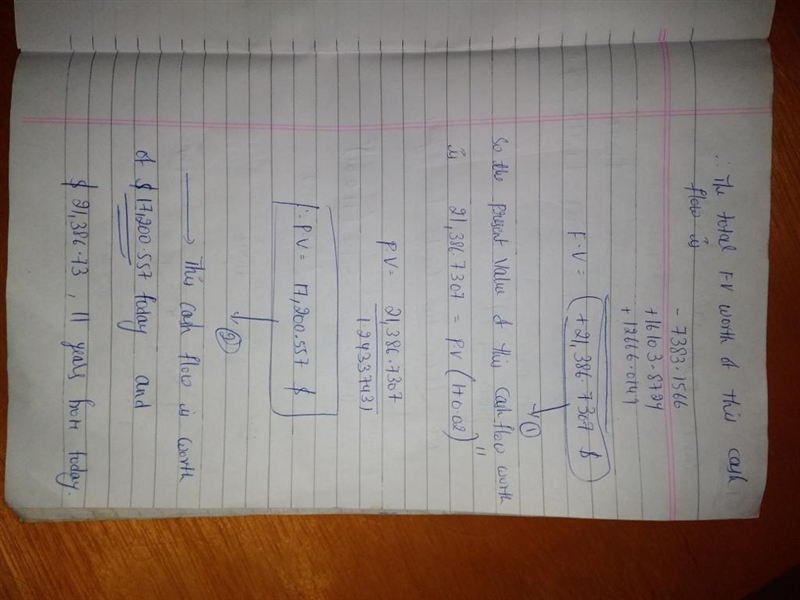 ∴ The total FV worth of this cash
flow is
- 7383.1566
+16103.8724
+12666.0149
F.V = +21,386.7307 $
①
So the present value of this cashflow worth
is 21,386.7307 = PV (1+0.02)¹¹
PV = 21,386.7307
1.24337431
∴ PV = 17,200.557 $
②
→ This cash flow is worth
of $ 17,200.557 today and
$ 21,386.73, 11 years from today.